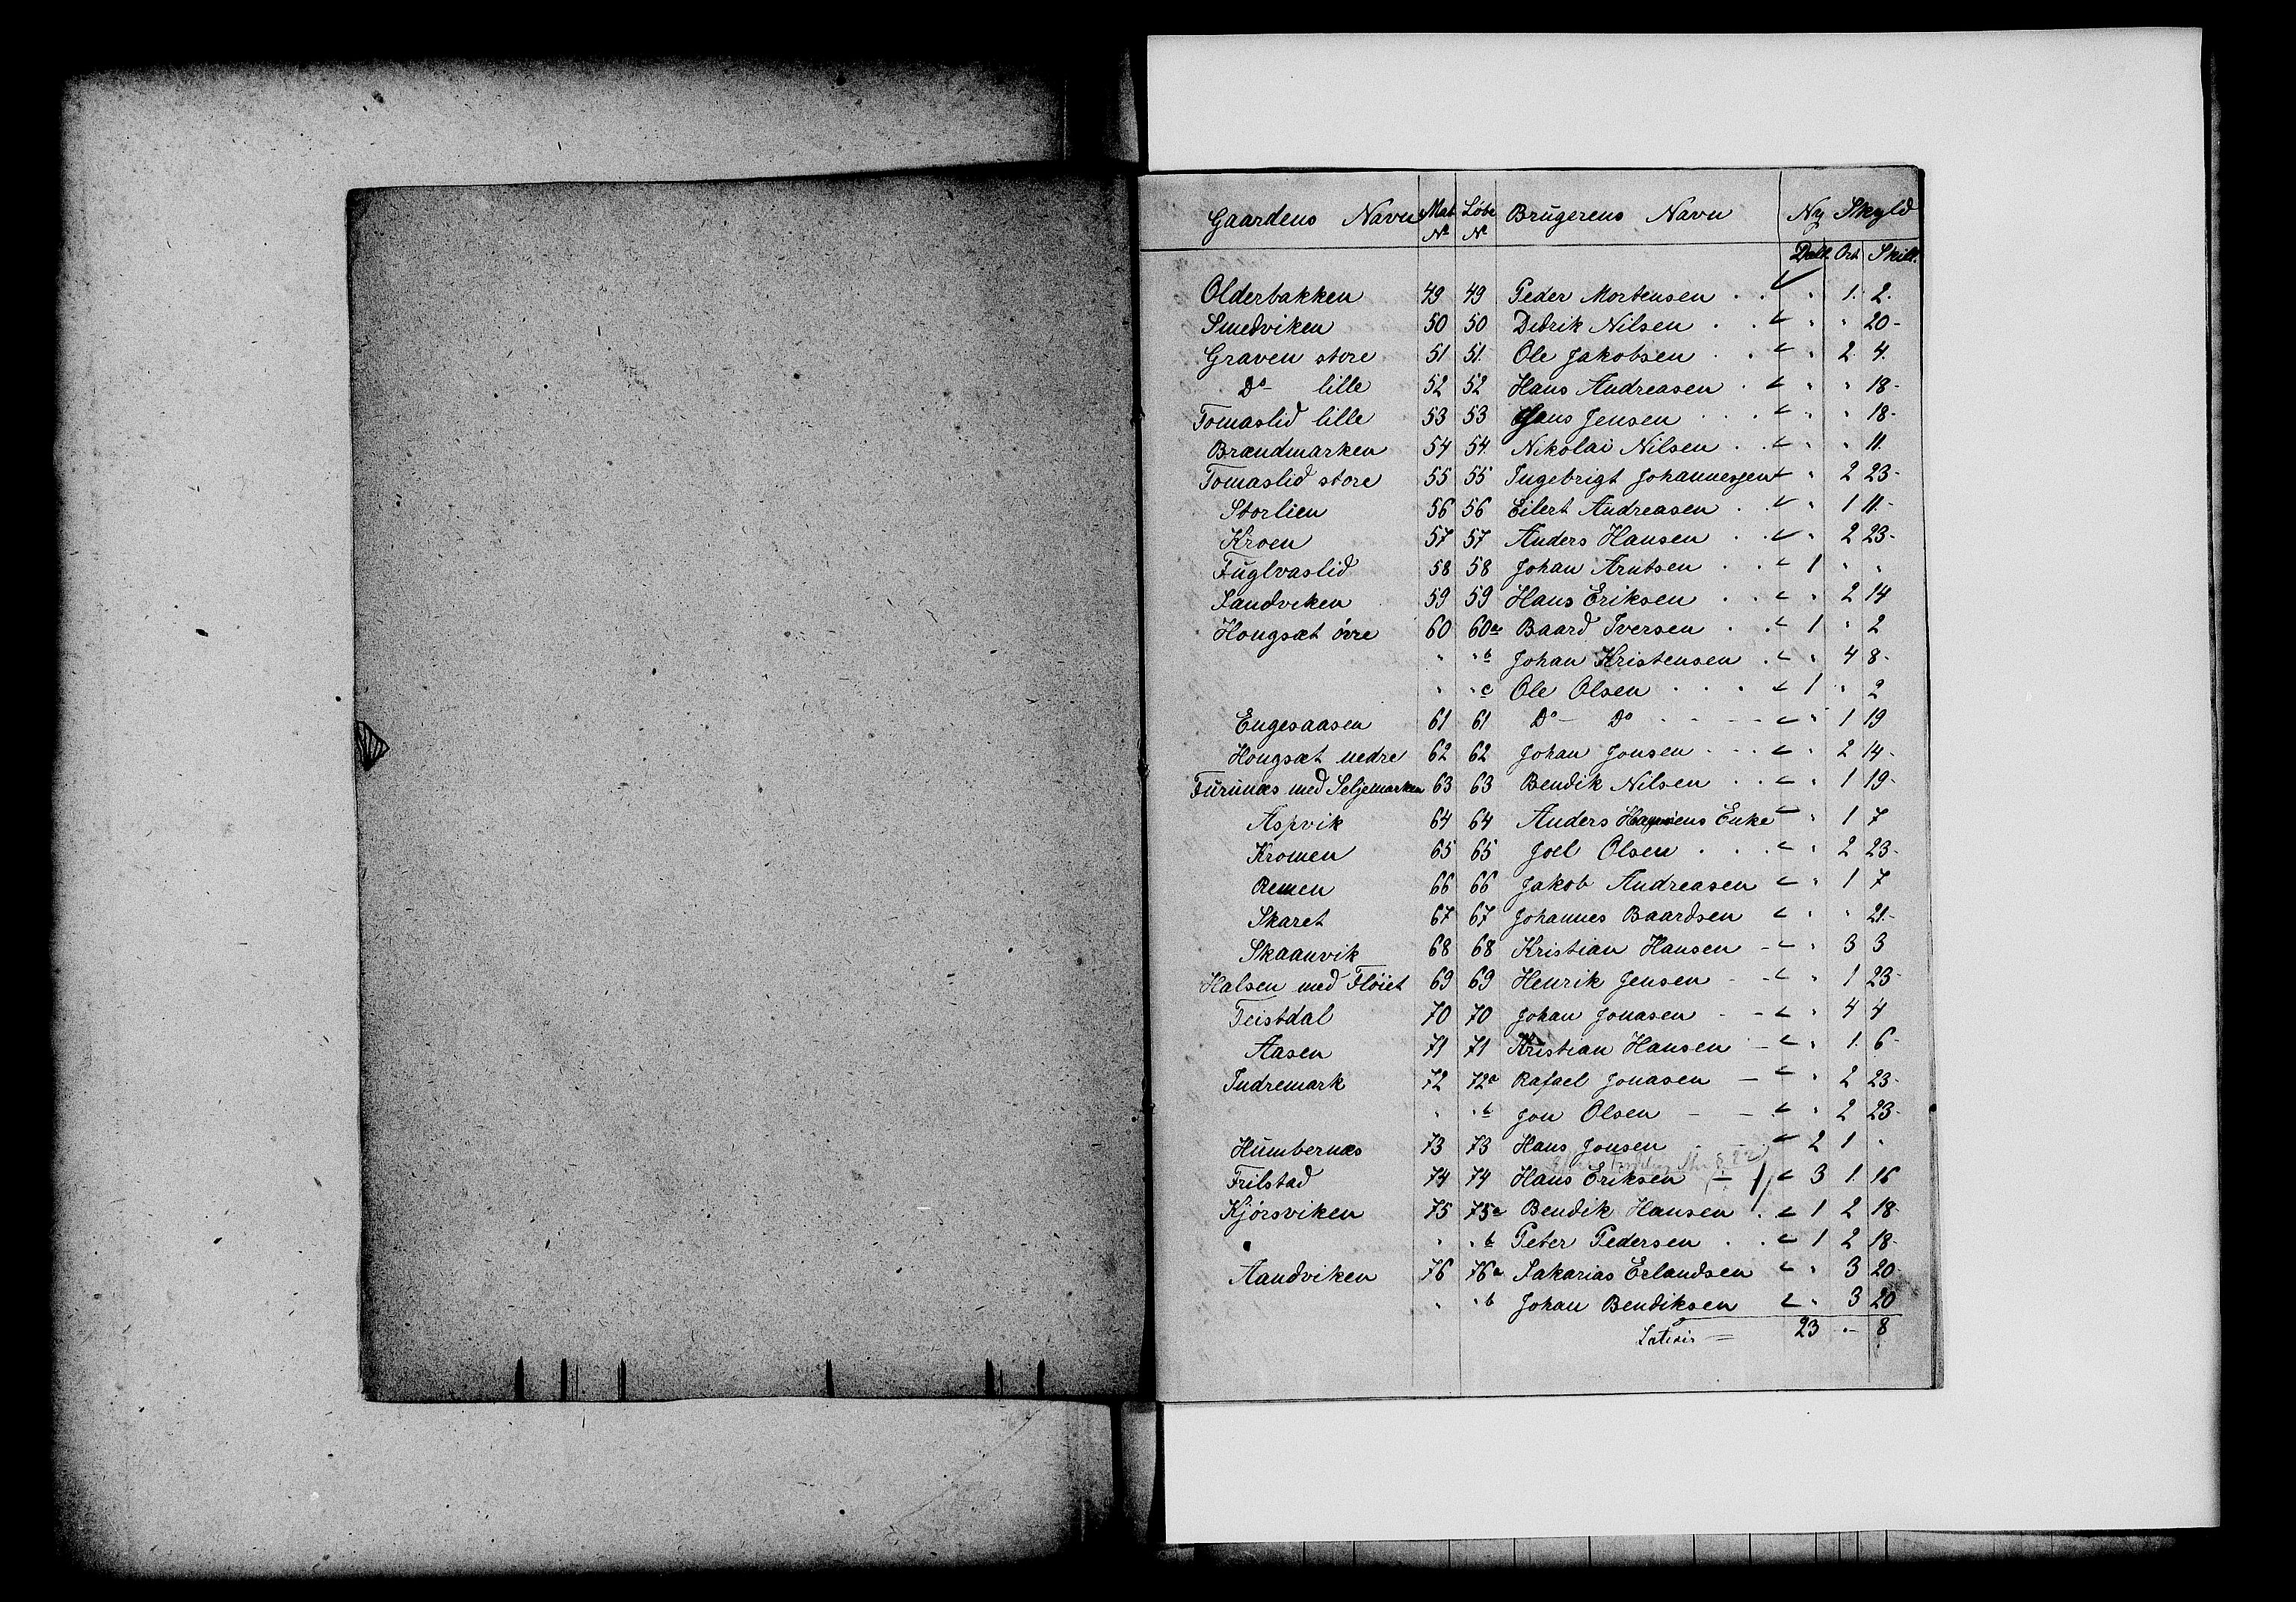 Gaardens Navn Mat Löbe Brugerens Navn Ny Skyld
No No
Dalr. Ort Skill.
Olderbakken 49 49 Peder Mortensen . . " 1. 2.
Smedviken 50 50 Dedrik Nilsen . . " " 20-
Graven store 51 51. Ole Jakobsen . . " 2. 4.
Do- lille 52 52 Hans Andreasen . " " 18-
Tomaslid lille 53 53 Hans Jensen . . . " " 18-
Brændmarken 54 54. Nikolai Nilsen . . " " 11.
Tomaslid store 55 55 Ingebrigt Johannesen " 2 23-
Storlien 56 56 Eilert Andreasen . . " 1 11.-
Kroen 57 57 Anders Hansen . . " 2 23-
Fuglvaslid 58 58 Johan Arntsen . . 1 " "
Sandviken 59 59 Hans Eriksen . . " 2 14
Hongsæt övre 60 60a Baard Iversen . . 1 " 2
" " b Johan Kristensen . " 4 8-
" " c Ole Olsen . . . 1 " 2
Engesaasen 61 61 Do- Do - - - " 1 19
Hongsæt nedre 62 62 Johan Jonsen . . . " 2 14-
Furunæs med Seljemarken 63 63 Bendik Nilsen . . " 1 19-
Aspvik 64 64 Anders Hansens Enke " 1 7
Kromen 65 65 Joel Olsen . . . " 2 23-
Remen 66 66 Jakob Andreasen " 1 7
Skaret 67 67 Johannes Baardsen " " 21.-
Skaanvik 68 68 Kristian Hansen - " 3 3
Halsen med Flöiet 69 69 Henrik Jensen - - " 1 23-
Teistdal 70 70 Johan Jonasen - - " 4 4
Aasen 71 71 Kristian Hansen - " 1. 6-
Indremark 72 72a Rafael Jonasen - " 2 23-
" " b Jon Olsen - - " 2 23-
Humbernæs 73 73 Hans Jonsen - - 2 1 "
Frilstad 74 74 Hans Eriksen - 3 1. 16
Kjörsviken 75 75a Bendik Hansen . 1 2 18-
" " b Peter Pedersen . . 1 2 18-
Aandviken 76 76a Sakarias Erlandsen " 3 20
" " b Johan Bendiksen " 3 20
Lateris = 23 " - 8